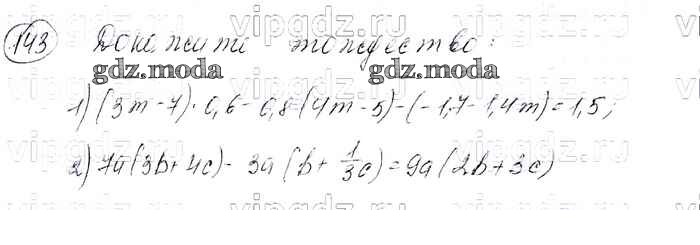 143 Докажите тождество:
gdz.moda gdz.moda
1) (3m-7)·0,6-0,8(4m-5)-(-1,7-1,4m)=1,5;
2) 7a(3b+4c)-3a(b+\frac{1}{3}c)=9a(2b+3c)